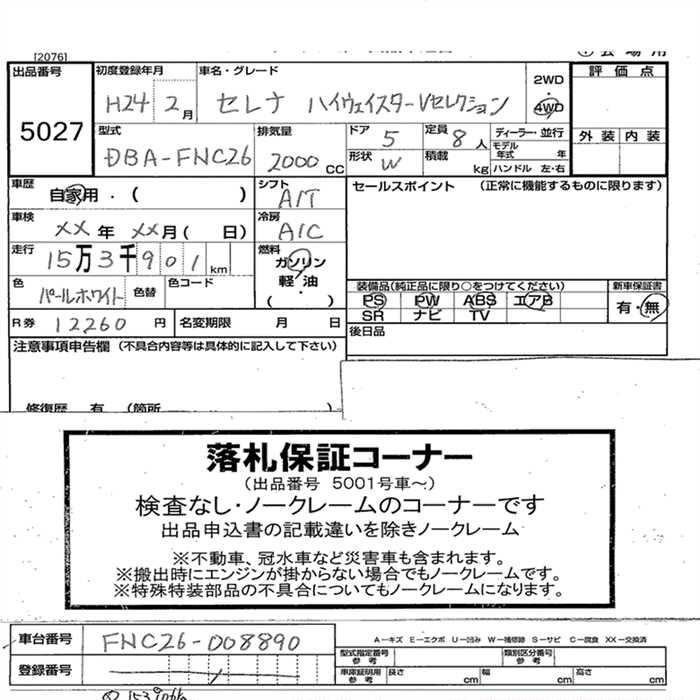 [2076]
出品番号 5027
初度登録年月 H24 2月
車名・グレード セレナ ハイウェイスターVセレクション
2WD
4WD
評価点
外装 内装
型式 DBA-FNC26
排気量 2000 CC
ドア 5
定員 8人
ディーラー・並行
モデル年式 年
形状 W
積載 kg
ハンドル 左・右
車歴 自家用・( )
シフト A/T
セールスポイント (正常に機能するものに限ります)
車検 XX年 XX月( 日)
冷房 A/C
走行 15万3千901km
燃料 ガソリン
軽油
( )
色 パールホワイト 色替 色コード
装備品(純正品に限り○をつけてください)
新車保証書
PS PW ABS エアB
SR ナビ TV
有・無
R券 12260円 名変期限 月 日
後日品
注意事項申告欄 (不具合内容等は具体的に記入して下さい)
修復歴 有 (箇所
落札保証コーナー
(出品番号 5001号車~)
検査なし・ノークレームのコーナーです
出品申込書の記載違いを除きノークレーム
※不動車、冠水車など災害車も含まれます。
※搬出時にエンジンが掛からない場合でもノークレームです。
※特殊特装部品の不具合についてもノークレームになります。
車台番号 FNC26-008890
A-キズ E-エクボ U-凹み W-補修跡 S-サビ C-腐食 XX-交換済
登録番号
型式指定番号 参考
類別区分番号 参考
車庫証明用 参考 長さ cm 幅 cm 高さ cm